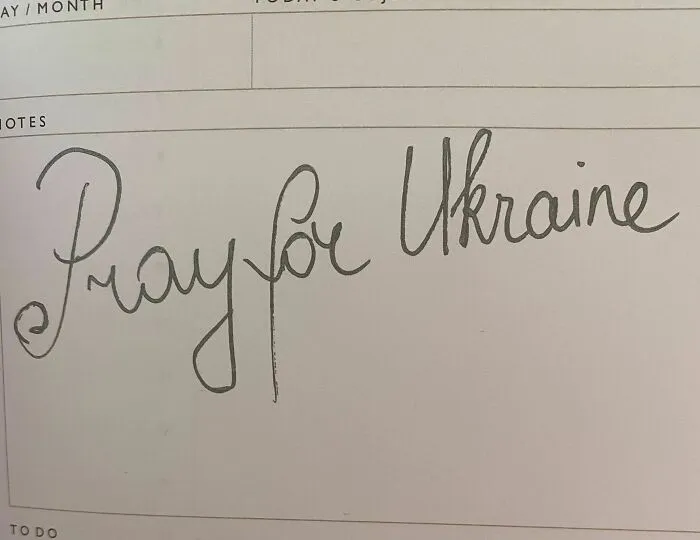 AY / MONTH
NOTES
Pray for Ukraine
TO DO